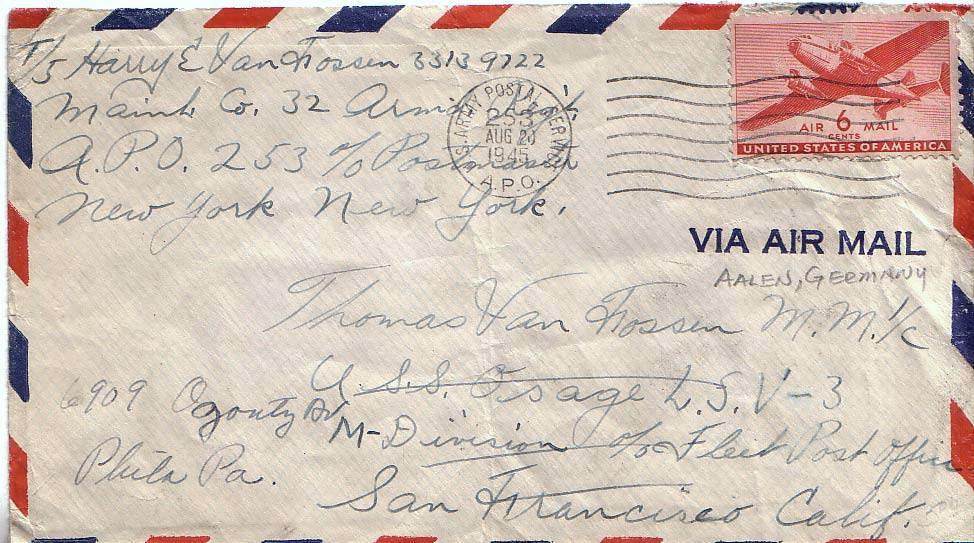 T/5 Harry E Van Fossen 33139722
Maint. Co. 32 Arm'd
A.P.O. 253 c/o Postmaster
New York New York.
U.S. ARMY POSTAL SERVICE
253
AUG 20
1945
A.P.O.
AIR 6 MAIL
CENTS
UNITED STATES OF AMERICA
VIA AIR MAIL
AALEN, GERMANY
Thomas Van Fossen M.M. 1/c
U.S.S. Osage L.S.V-3
M-Division c/o Fleet Post Office
San Francisco Calif.
6909 Ogontz Av
Phila Pa.